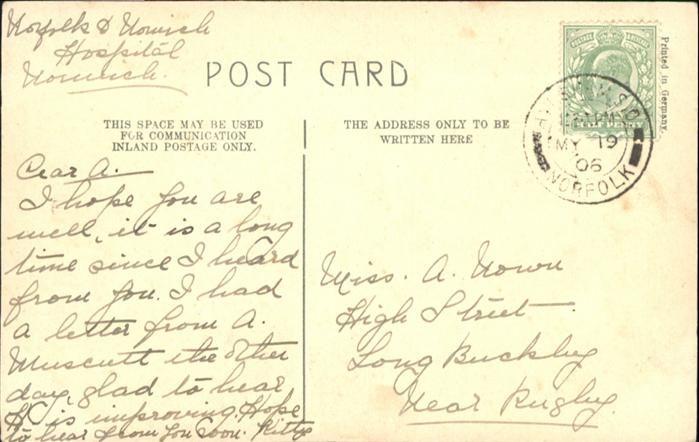 Norfolk & Norwich
Hospital
Norwich.
POST CARD
Printed in Germany.
THIS SPACE MAY BE USED
FOR COMMUNICATION
INLAND POSTAGE ONLY.
THE ADDRESS ONLY TO BE
WRITTEN HERE
HALF PENNY
MY 19
06
NORFOLK
Dear A.
I hope you are
well, it is a long
time since I heard
from you. I had
a letter from A.
Muscutt the other
day, glad to hear
is improving. Hope
to hear from you soon. Kitty
Miss. A. Nown
High Street
Long Buckby
Near Rugby.